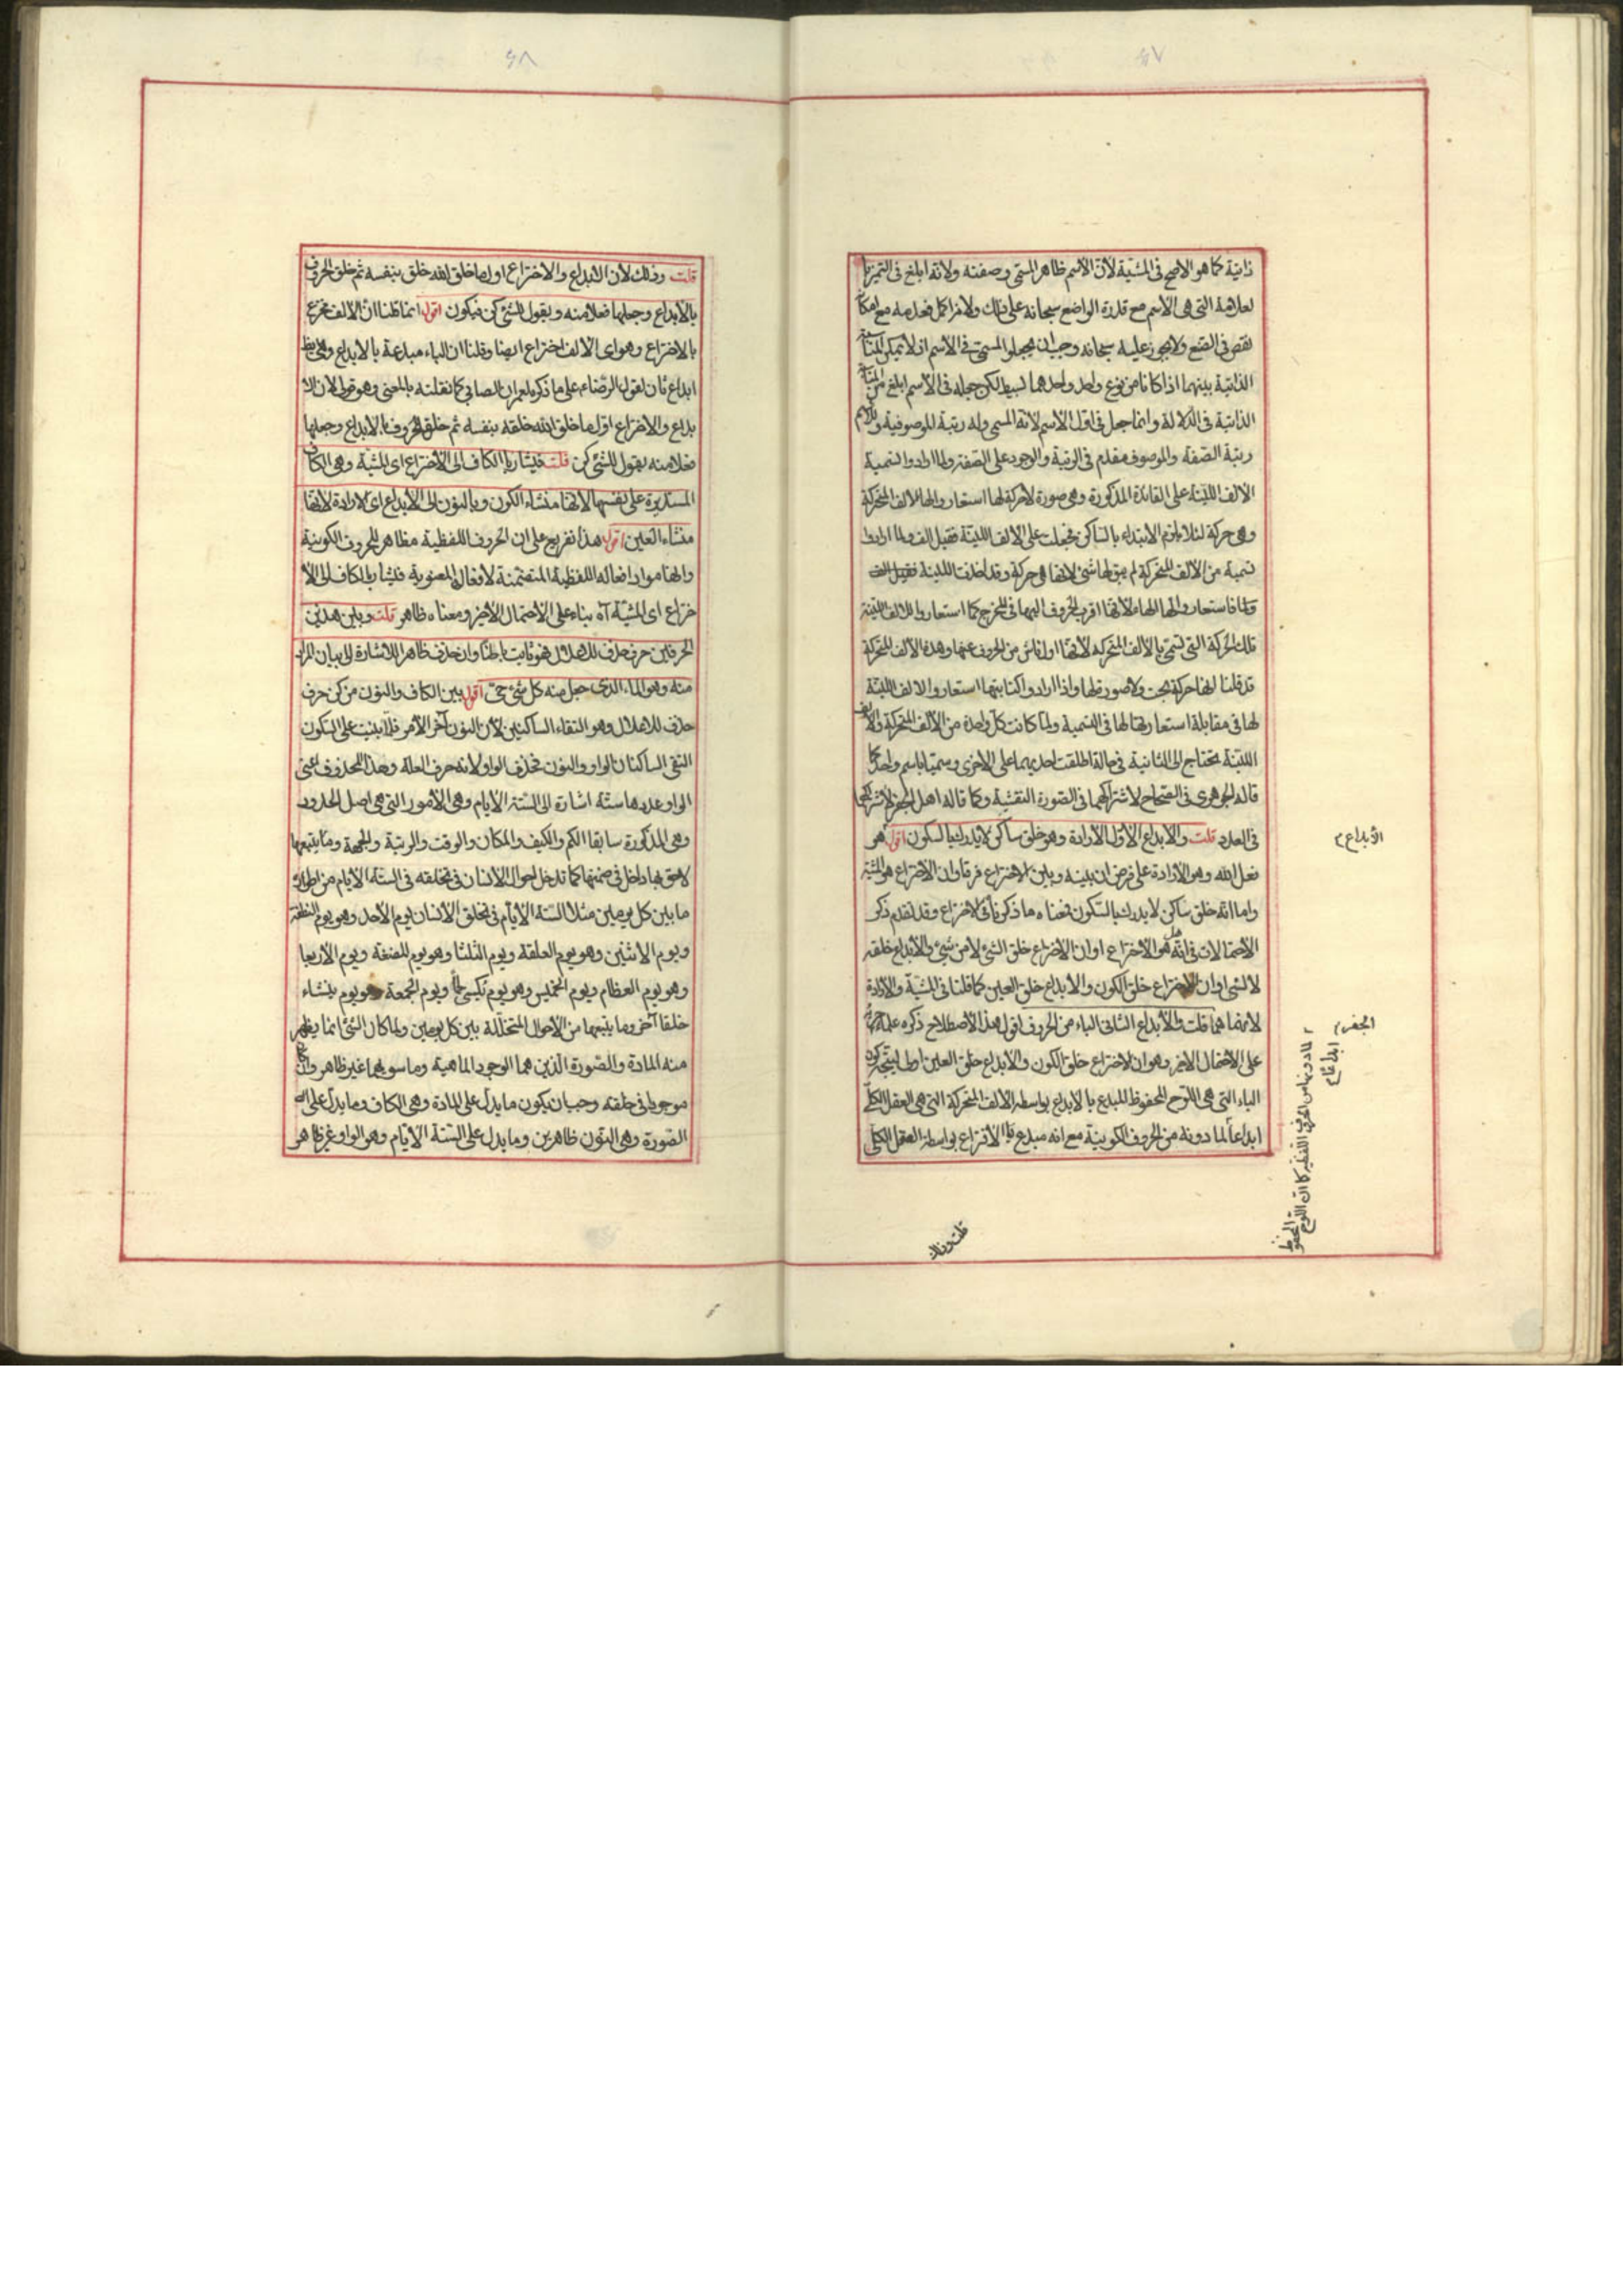 ذاتية كما هو الاصح فى المشية لأن الأسم ظاهر المسمى وصفته ولأنه ابلغ فى التميز
لعلامة التى هى الاسم مع قدرة الواضع سبحانه على ذلك
نقص فى الصنع ولا يجوز عليه سبحانه وجب ان يجعلوا المسمى فى الأسم
الذاتية بينهما اذا كانا من نوع واحد واحدهما بسيط لكن جعله فى الأسم ابلغ من
الذاتية فى الدلالة وانما جعل فى اول الأسم لانه المسمى وله رتبة الموصوفية
رتبة الصفة والموصوف مقدم فى الرتبة والوجود على الصفة ولما ارادوا تسمية
الألف اللينة على القاعدة المذكورة وهى صورة لا حركة لها استعاروا لها الالف المتحركة
وهى حركة لئلا يلزم الابتداء بالساكن فجعلت على الألف اللينة فقيل الف ولما ارادوا
تسمية من الألف المتحركة لم يبق لها شئ لانها هى حركة وقد اخذت اللينة فقيل الف
فاستعاروا لها الهاء لأنها اقرب الحروف اليها فى المخرج كما استعاروا للالف اللينة
تلك الحركة التى تسمى بالألف المتحركة لأنها اول ناش من الحروف عنها وهذه الألف المتحركة
قد قلنا انها حركة بحت ولا صورة لها واذا ارادوا كتابتها استعاروا الالف اللينة
لها فى مقابلة استعارتها لها فى التسمية ولما كانت كل واحدة من الألف المتحركة والألف
اللينة تحتاج الى الثانية فى حالة اطلقت احديهما على الاخرى وسميتا باسم واحد كما
قاله الجوهرى فى الصحاح لاشتراكهما فى الصورة النقشية وكما قاله اهل الجفر لاشتراكهما
فى العدد قلت والأبداع الأول الأرادة وهو خلق ساكن لا يدرك بالسكون اقول هو
فعل الله وهو الأرادة على فرض ان بينه وبين الاختراع فرقا وان الاختراع هو المشية
واما انه خلق ساكن لا يدرك بالسكون فمعناه ما ذكرنا فى الاختراع وقد تقدم ذكر
الأحتمالات فى انه هو الأختراع او ان الاختراع خلق الشئ لا من شئ والأبداع خلقه
لا لشئ او ان الاختراع خلق الكون والأبداع خلق العين كما قلنا فى المشية والارادة
لانهما هما قلت والأبداع الثانى الباء من الحروف اقول هذا الاصطلاح ذكره علماء
على الاحتمال الاخير وهو ان الاختراع خلق الكون والأبداع خلق العين
الباء التى هى اللوح المحفوظ المبدع بالابداع بواسطة الالف المتحركة التى هى العقل الكلى
ابداعاً لما دونه من الحروف الكونية مع انه مبدع بالأختراع بواسطة العقل الكلى
الأبداع م
الجفر م
لما دونها من الحروف اللفظية كما ان اللوح المحفوظ
ابداع
قلت وذلك
قلت وذلك لأن الابداع والاختراع اول ما خلق الله خلق بنفسه ثم خلق الحروف
بالأبداع وجعلها فعلا منه ويقول للشئ كن فيكون اقول انما قلنا ان الألف مخترع
بالاختراع وهو اى الالف اختراع ايضا وقلنا ان الباء مبدعة بالابداع وهى ايضا
ابداع ثان لقول الرضاء على ما ذكره لعمران الصابى كما نقلته بالمعنى وهو قولى لأن الا
بداع والاختراع اول ما خلق الله خلقه بنفسه ثم خلق الحروف بالابداع وجعلها
فعلا منه يقول للشئ كن قلت فيشار بالكاف الى الأختراع اى المشية وهى الكاف
المستديرة على نفسها لانها منشاء الكون وبالنون الى الأبداع اى الارادة لانها
منشاء العين اقول هذا تفريع على ان الحروف اللفظية مظاهر للحروف الكونية
وانها مواد افعاله اللفظية المتضمنة لافعال المعنوية فيشار بالكاف الى الأ
ختراع اى المشية آه بناء على الأحتمال الأخير ومعناه ظاهر قلت وبين هذين
الحرفين حرف حذف للاعلال فهو ثابت باطناً وان حذف ظاهرا للاشارة الى بيان المراد
منه وهو الماء الذى جعل منه كل شئ حى اقول بين الكاف والنون من كن حرف
حذف للاعلال وهو التقاء الساكنين لأن النون آخر الأمر فلما بنيت على السكون
التقى الساكنان الواو والنون فحذف الواو لانه حرف العلة وهذا المحذوف اعنى
الواو عددها ستة اشارة الى الستة الأيام وهى الأمور التى هى اصل الحدود
وهى المذكورة سابقا الكم والكيف والمكان والوقت والرتبة والجهة وما يتبعها
لاحق بها داخل فى ضمنها كما تدخل احوال الانسان فى تخلقه فى الستة الأيام من اطواره
ما بين كل يومين مثلا الستة الأيام فى تخلق الأنسان يوم الأحد وهو يوم النطفة
ويوم الاثنين وهو يوم العلقة ويوم الثلثا وهو يوم المضغة ويوم الأربعا
وهو يوم العظام ويوم الخميس وهو يوم يكسى لحماً ويوم الجمعة وهو يوم ينشاء
خلقا آخر وما يتبعها من الأحوال المتخللة بين كل يومين ولما كان الشئ انما يظهر
منه المادة والصورة الذين هما الوجود والماهية وما سويهما غير ظاهر وان كان
موجودا فى خلقته وجب ان يكون ما يدل على المادة وهى الكاف وما يدل على
الصورة وهى النون ظاهرين وما يدل على الستة الأيام وهو الواو غير ظاهر